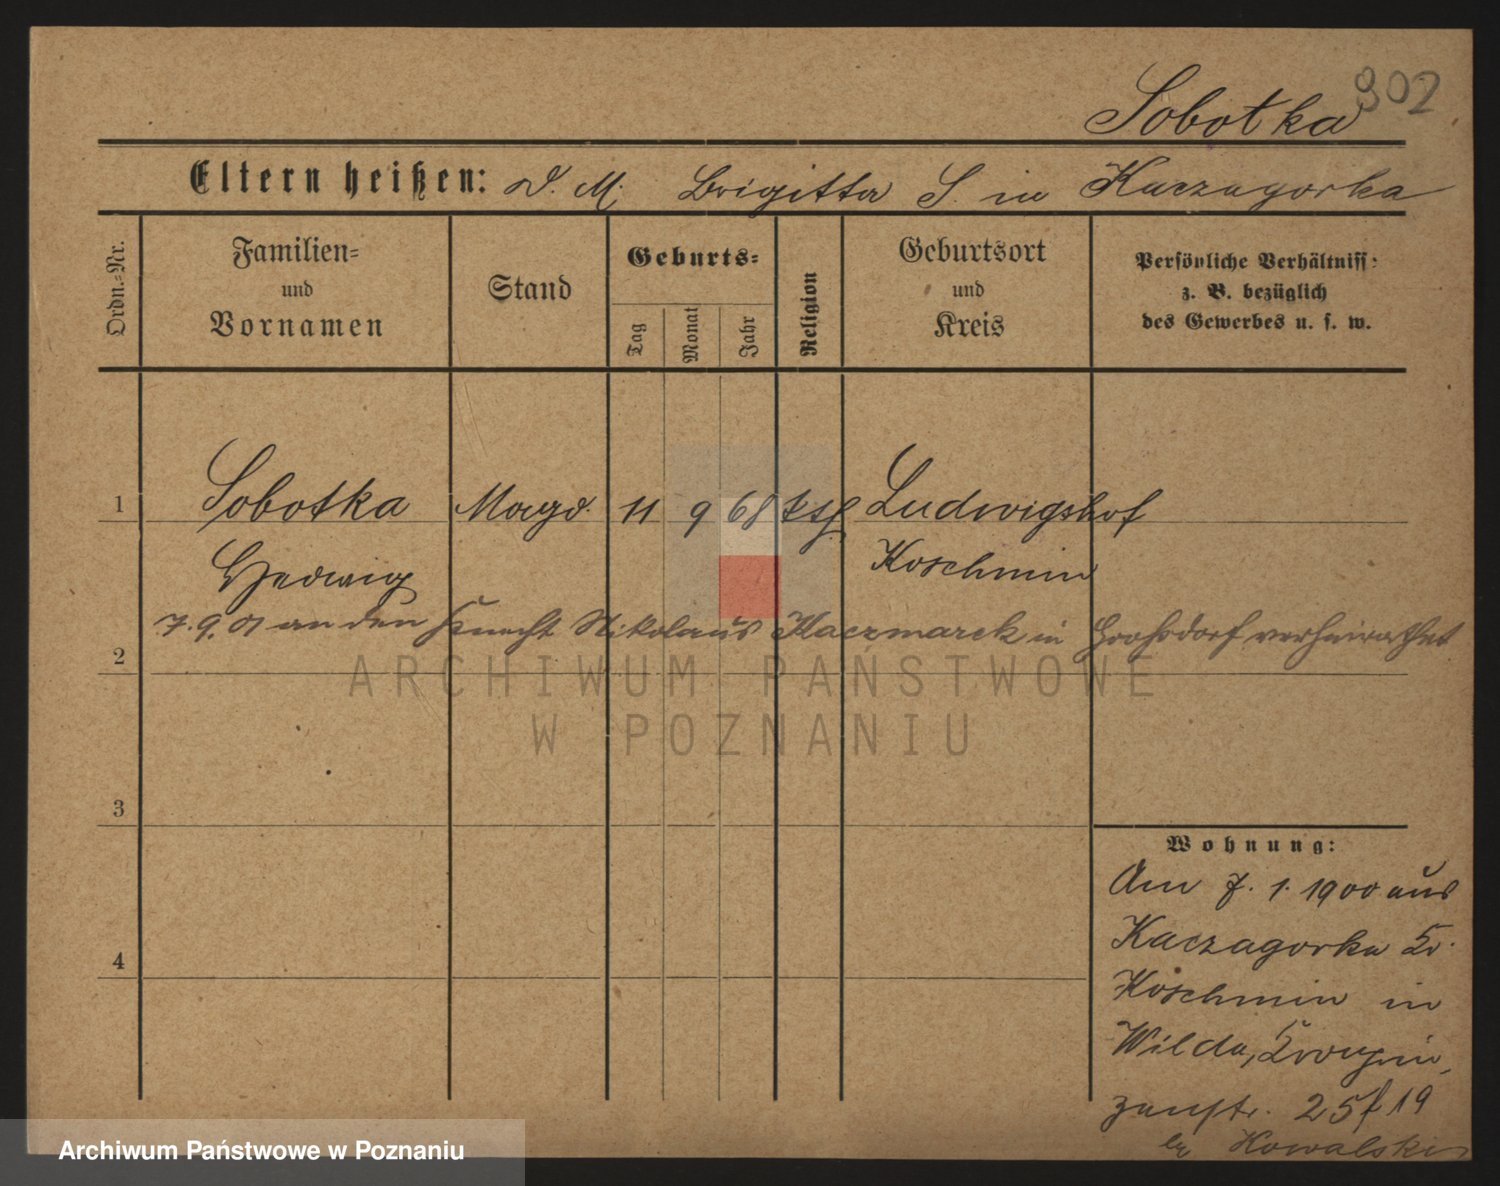 302
Sobotka
Eltern heißen: d. M. Brigitta S. in Kaczagorka
Ordn.-Nr.
Familien-
und
Vornamen
Stand
Geburts-
Tag
Monat
Jahr
Religion
Geburtsort
und
Kreis
Persönliche Verhältniss:
z. B. bezüglich
des Gewerbes u. s. w.
1 Sobotka Magd. 11 9 68 kth Ludwigshof
Hedwig Koschmin
7.9.01 an den Knecht Nikolaus Kaczmarek in verheirathet
2
ARCHIWUM PAŃSTWOWE
W POZNANIU
3
Wohnung:
Am 7. 1. 1900 aus
Kaczagorka Kr.
Koschmin in
Wilda, Kronprin-
zenstr. 25 19
Kowalski
4
Archiwum Państwowe w Poznaniu